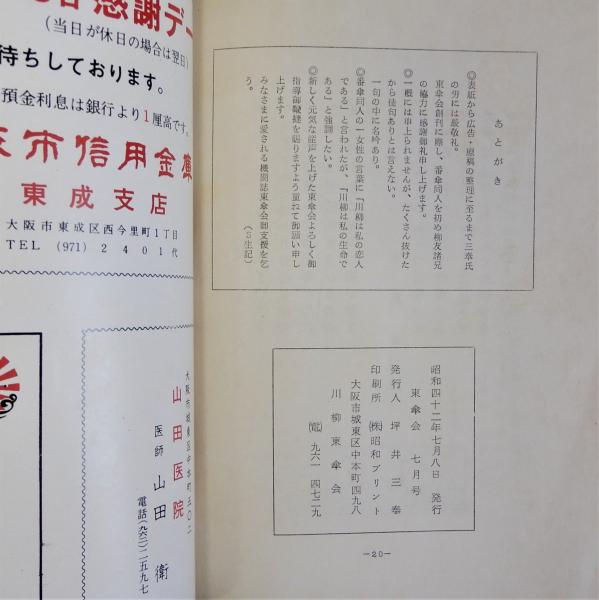 感謝デー
(当日が休日の場合は翌日)
待ちしております。
預金利息は銀行より1厘高です。
市信用金庫
東成支店
大阪市東成区西今里町1丁目
TEL (971) 2401代
大阪市城東区中本町五〇二
山田医院
医師 山田 衛
電話(九六二)二五九七
あとがき
◎表紙から広告・原稿の整理に至るまで三章氏
の労には最敬礼。
東傘会創刊に際し、番傘同人を初め柳友諸兄
の協力に感謝御礼申し上げます。
◎一概には申上られませんが、たくさん抜けた
から佳句ありとは言えない。
一句の中に名吟あり。
◎番傘同人の一女性の言葉に『川柳は私の恋人
である』と言われたが、『川柳は私の生命で
ある』と強調したい。
◎新しく元気な産声を上げた東傘会よろしく御
指導御鞭撻を賜りますよう重ねて御願い申し
上げます。
みなさまに愛される機関誌東傘会御支援を乞
う。
(S生記)
昭和四十二年七月八日 発行
東傘会 七月号
発行人 坪井三奉
印刷所 ㈱昭和プリント
大阪市城東区中本町四九八
川柳東傘会
(電) 九六一 四七二九
—20—